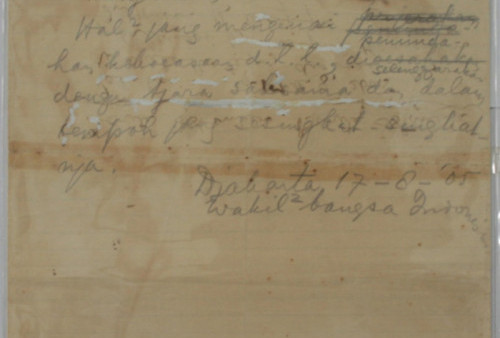 Hal2 jang mengenai penjerahan
pemindahan
kan kekoeasaan d.l.l., diselenggarakan
dengan tjara saksama dan dalam
tempoh jang sesingkat-singkat-
nja.
Djakarta 17 - 8 - '05
Wakil2 bangsa Indonesia